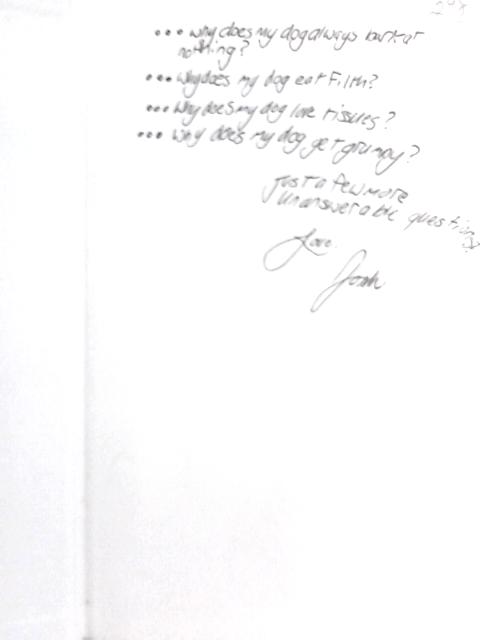 ... why does my dog always bark at
nothing?
... Why does my dog eat Filth?
... Why does my dog love tissues?
... why does my dog get grumpy?
Just a few more
unanswerable questions?
Love.